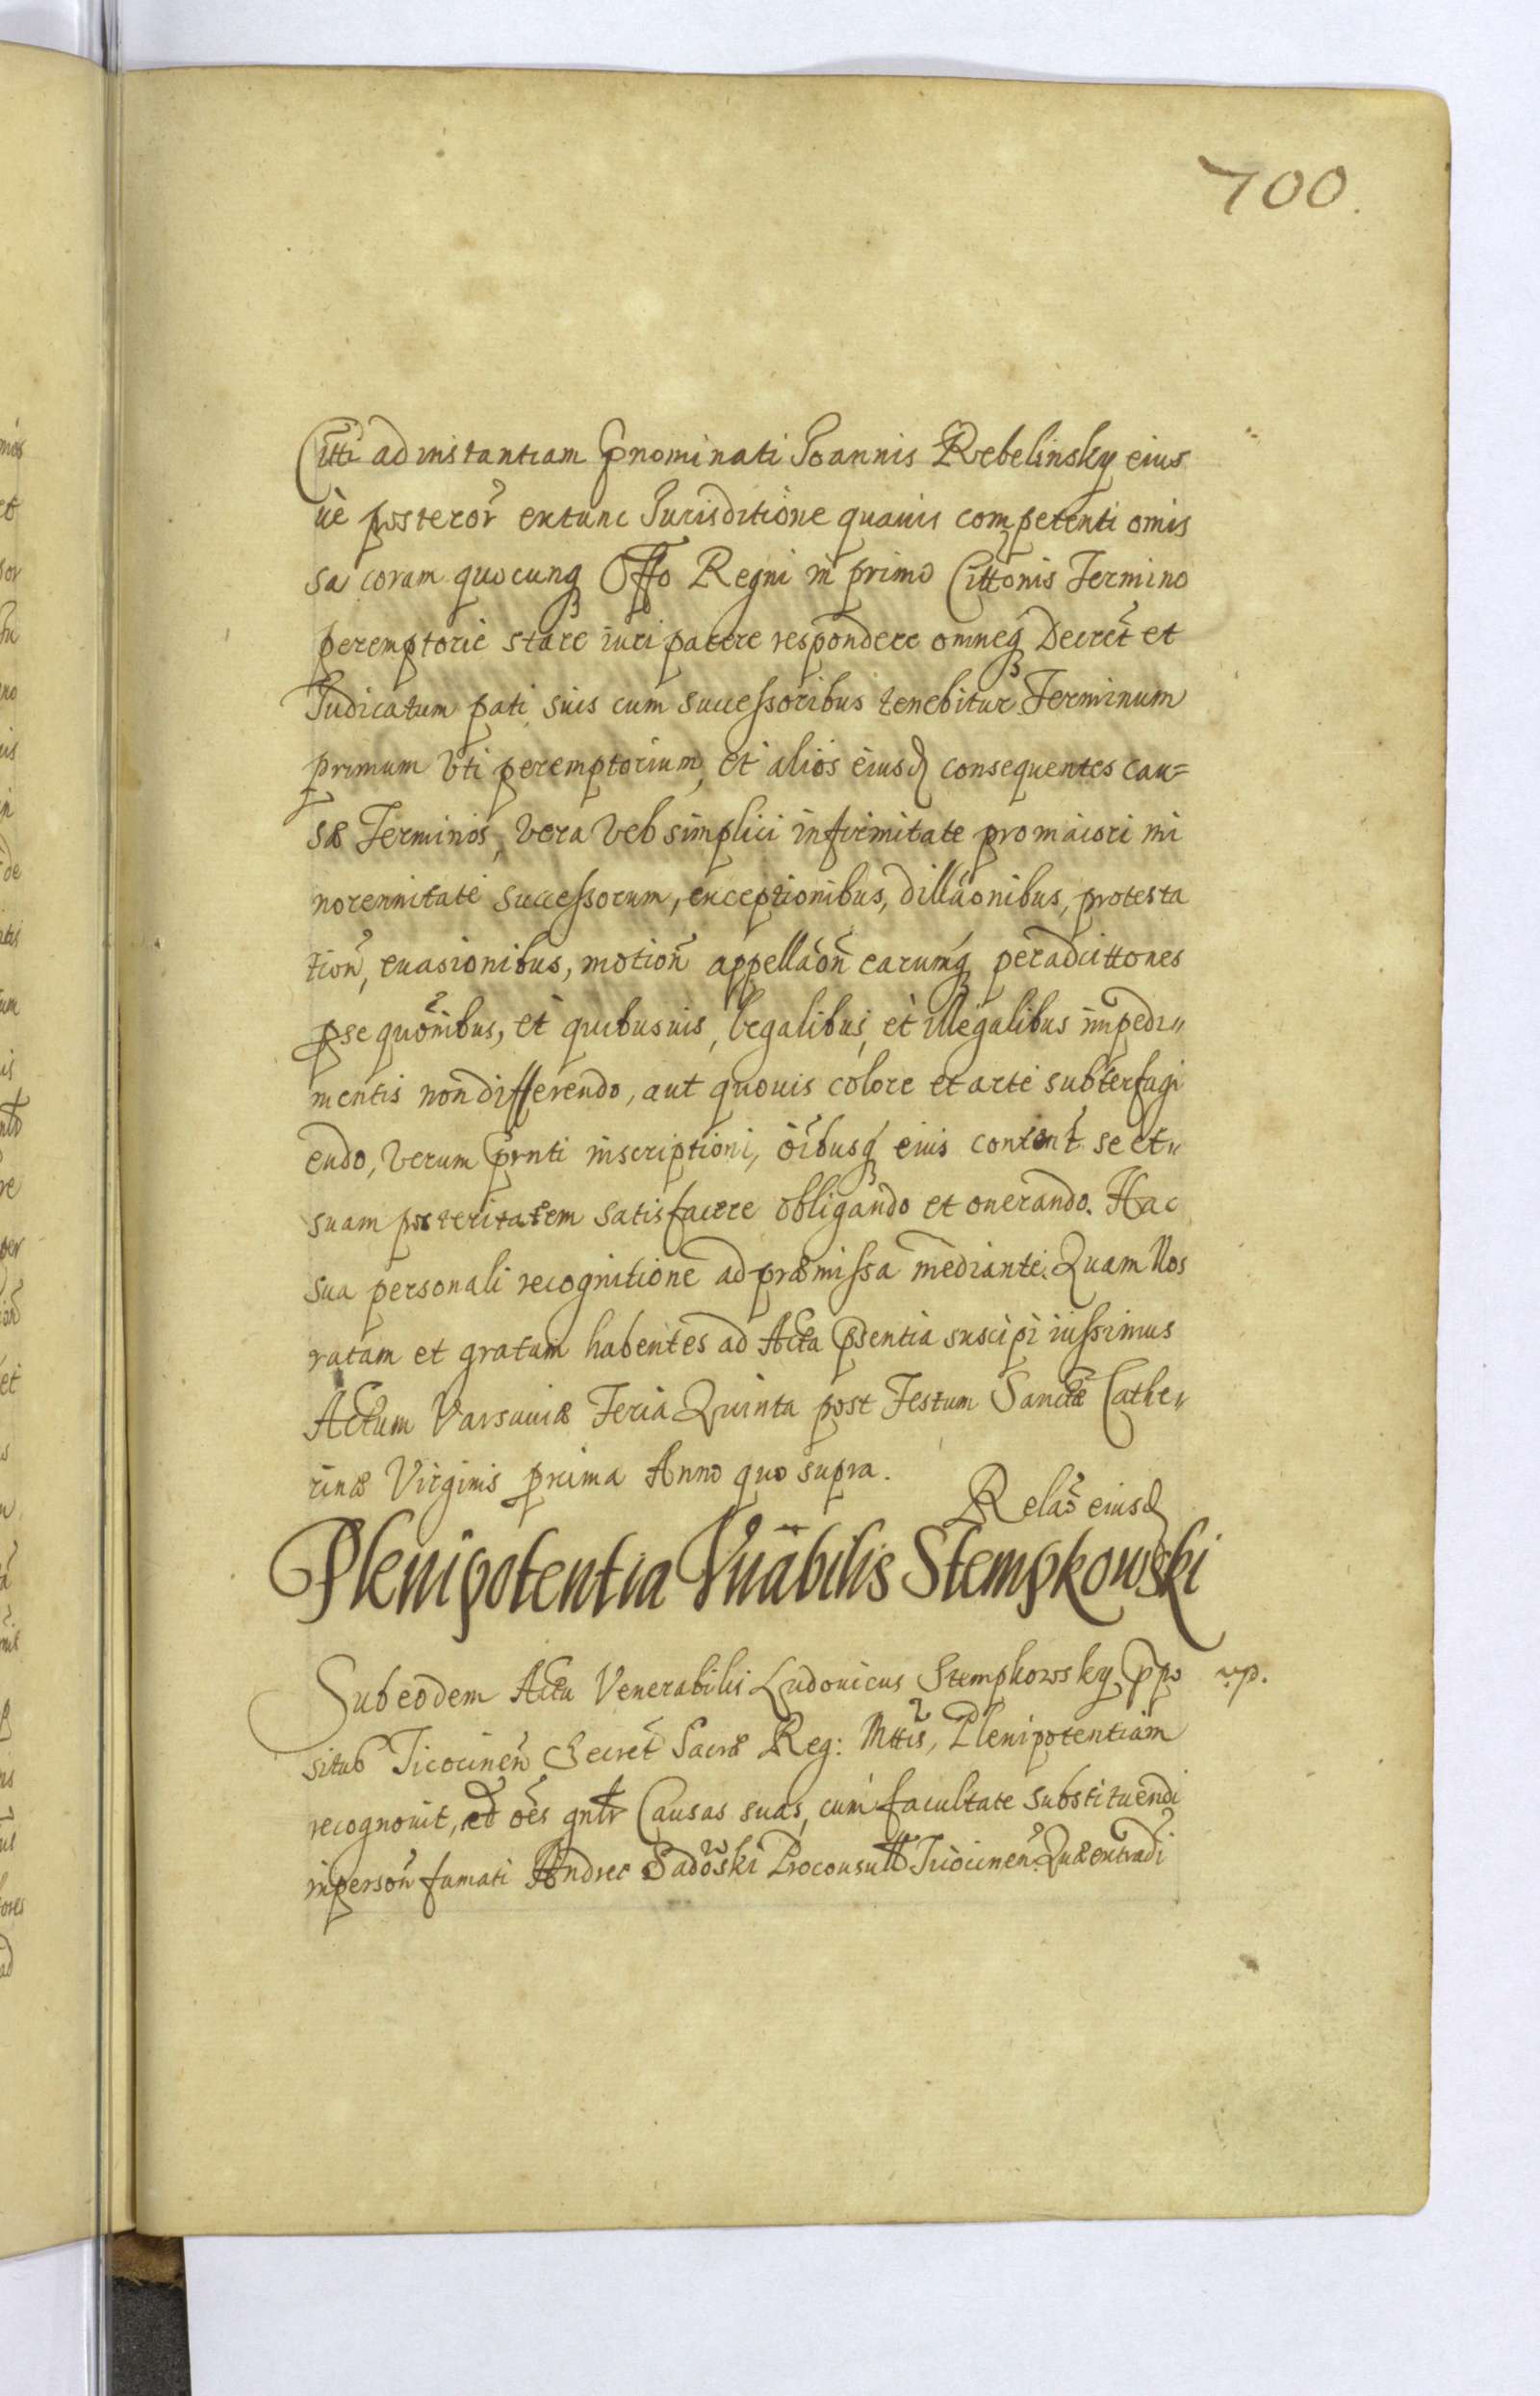 700.
Citti ad instantiam pnominati Joannis Rebelinsky eius
ue posteror extunc Jurisditione quauis competenti omis
sa coram quocunq Offo Regni in primo Cittonis Termino
peremptorie stare iuri parere respondere omneq Decret et
Judicatum pati suis cum successoribus tenebitur. Terminum
primum vti peremptorium, et alios eiusd consequentes cau=
sæ Terminos, vera vel simplici infirmitate pro maiori mi
norennitate successorum, exceptionibus, dillaonibus, protesta
tion, euasionibus, motion appellaon earumq peradcittones
psequonibus, et quibusuis, legalibus, et illegalibus impedi„
mentis non differendo, aut quouis colore et arte subterfugi
endo, verum pnti inscriptioni, oibusq eius content se et„
suam posteritatem satisfacere obligando et onerando. Hac
sua personali recognitione ad præmissa mediante. Quam Nos
ratam et gratam habentes ad Acta psentia suscipi iussimus
Actum Varsauiæ Feria Quinta post Festum Sanctæ Cathe„
rinæ Virginis prima Anno quo supra.
Relao eiusd
Plenipotentia Vnabilis Stempkowski
Sub eodem Actu Venerabilis Ludouicus Stempkowsky Ppo
situs Ticocinen Secret Sacræ Reg: Mttis, Plenipotentiam
recognouit, ad oes gnlr Causas suas, cum facultate substituendi
in person famati Andreæ Sadowski Proconsul Ticocinen. Quæ extradi